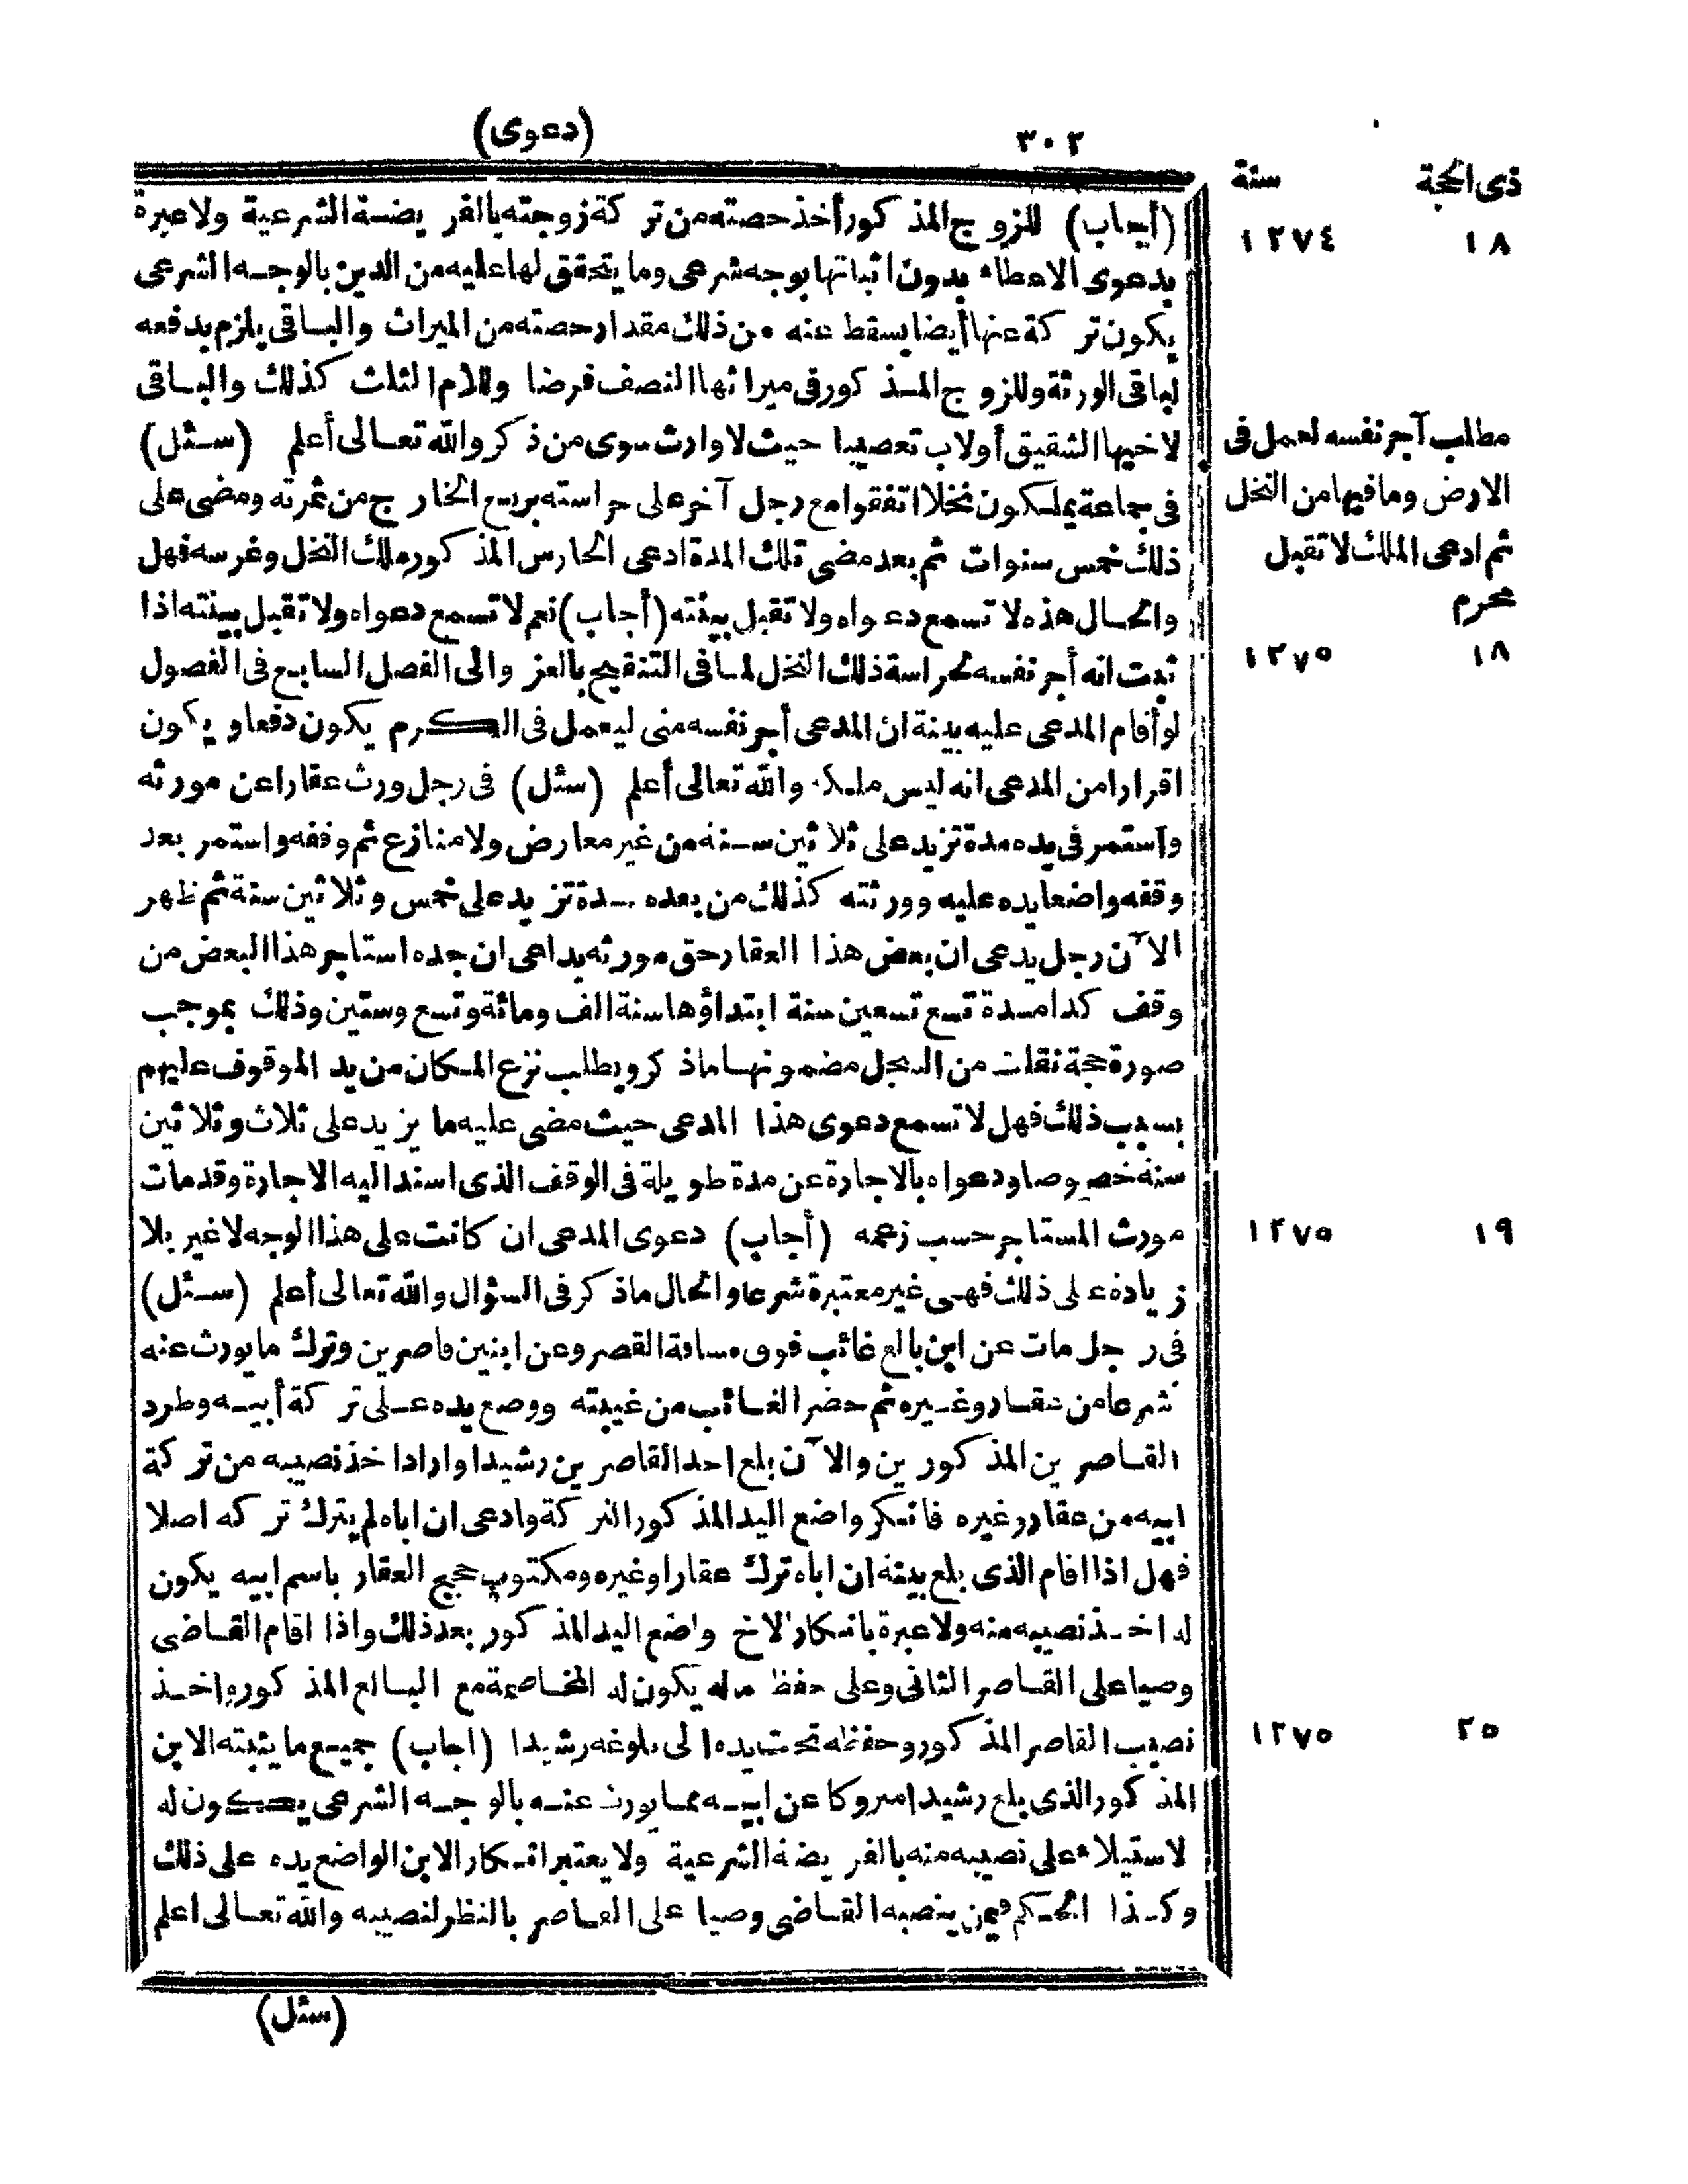 (دعوى)
٣٠٢
ذى الحجة سنة
١٨ ١٢٧٤
(أجاب) للزوج المذكور أخذ حصته من تركة زوجته بالفريضة الشرعية ولا عبرة
بدعوى الاعطاء بدون اثباتها بوجه شرعى وما يتحقق لها عليه من الدين بالوجه الشرعى
يكون تركة عنها أيضا يسقط عنه من ذلك مقدار حصته من الميراث والباقى يلزم بدفعه
لباقى الورثة وللزوج المذكور فى ميراثها النصف فرضا وللام الثلث كذلك والباقى
لاخيها الشقيق أو لاب تعصيبا حيث لا وارث سوى من ذكر والله تعالى أعلم (سئل)
فى جماعة يملكون نخلا اتفقوا مع رجل آخر على حراسته بربع الخارج من ثمرته ومضى على
ذلك خمس سنوات ثم بعد مضى تلك المدة ادعى الحارس المذكور ملك النخل وغرسه فهل
والحال هذه لا تسمع دعواه ولا تقبل بينته (أجاب) نعم لا تسمع دعواه ولا تقبل بينته اذا
ثبت انه أجر نفسه لحراسة ذلك النخل لما فى التنقيح بالعزو الى الفصل السابع فى الفصول
لو أقام المدعى عليه بينة ان المدعى أجر نفسه منى ليعمل فى الكرم يكون دفعا ويكون
اقرارا من المدعى انه ليس ملكه والله تعالى أعلم (سئل) فى رجل ورث عقارا عن مورثه
واستمر فى يده مدة تزيد على ثلاثين سنة من غير معارض ولا منازع ثم وقفه واستمر بعد
وقفه واضعا يده عليه وورثته كذلك من بعده مدة تزيد على خمس وثلاثين سنة ثم ظهر
الآن رجل يدعى ان بعض هذا العقار حق مورثه بداعى ان جده استاجر هذا البعض من
وقف كذا مدة تسع تسعين سنة ابتداؤها سنة الف ومائة وتسع وستين وذلك بموجب
صورة حجة نقلت من السجل مضمونها ما ذكر ويطلب نزع المكان من يد الموقوف عليهم
بسبب ذلك فهل لا تسمع دعوى هذا المدعى حيث مضى عليه ما يزيد على ثلاث وثلاثين
سنة خصوصا ودعواه بالاجارة عن مدة طويلة فى الوقف الذى اسند اليه الاجارة وقد مات
مورث المستاجر حسب زعمه (أجاب) دعوى المدعى ان كانت على هذا الوجه لا غير بلا
زيادة على ذلك فهى غير معتبرة شرعا والحال ما ذكر فى السؤال والله تعالى أعلم (سئل)
فى رجل مات عن ابن بالغ غائب فوق مسافة القصر وعن ابنين قاصرين وترك ما يورث عنه
شرعا من عقار وغيره ثم حضر الغائب من غيبته ووضع يده على تركة أبيه وطرد
القاصرين المذكورين والآن بلغ احد القاصرين رشيدا واراد اخذ نصيبه من تركة
ابيه من عقار وغيره فانكر واضع اليد المذكور التركة وادعى ان اباه لم يترك تركه اصلا
فهل اذا اقام الذى بلغ بينة ان اباه ترك عقارا وغيره ومكتوب حجج العقار باسم ابيه يكون
له اخذ نصيبه منه ولا عبرة بانكار الاخ واضع اليد المذكور بعد ذلك واذا اقام القاضى
وصيا على القاصر الثانى وعلى حفظ ماله يكون له المخاصمة مع البالغ المذكور واخذ
نصيب القاصر المذكور وحفظه تحت يده الى بلوغه رشيدا (اجاب) جميع ما يثبته الابن
المذكور الذى بلغ رشيدا متروكا عن ابيه مما يورث عنه بالوجه الشرعى يكون له
لاستيلاء على نصيبه منه بالفريضة الشرعية ولا يعتبر انكار الابن الواضع يده على ذلك
وكذا الحكم فيمن ينصبه القاضى وصيا على القاصر بالنظر لنصيبه والله تعالى اعلم
مطلب آجر نفسه لعمل فى
الارض وما فيها من النخل
ثم ادعى الملك لا تقبل
محرم
١٨ ١٢٧٥
١٩ ١٢٧٥
٢٥ ١٢٧٥
(سئل)